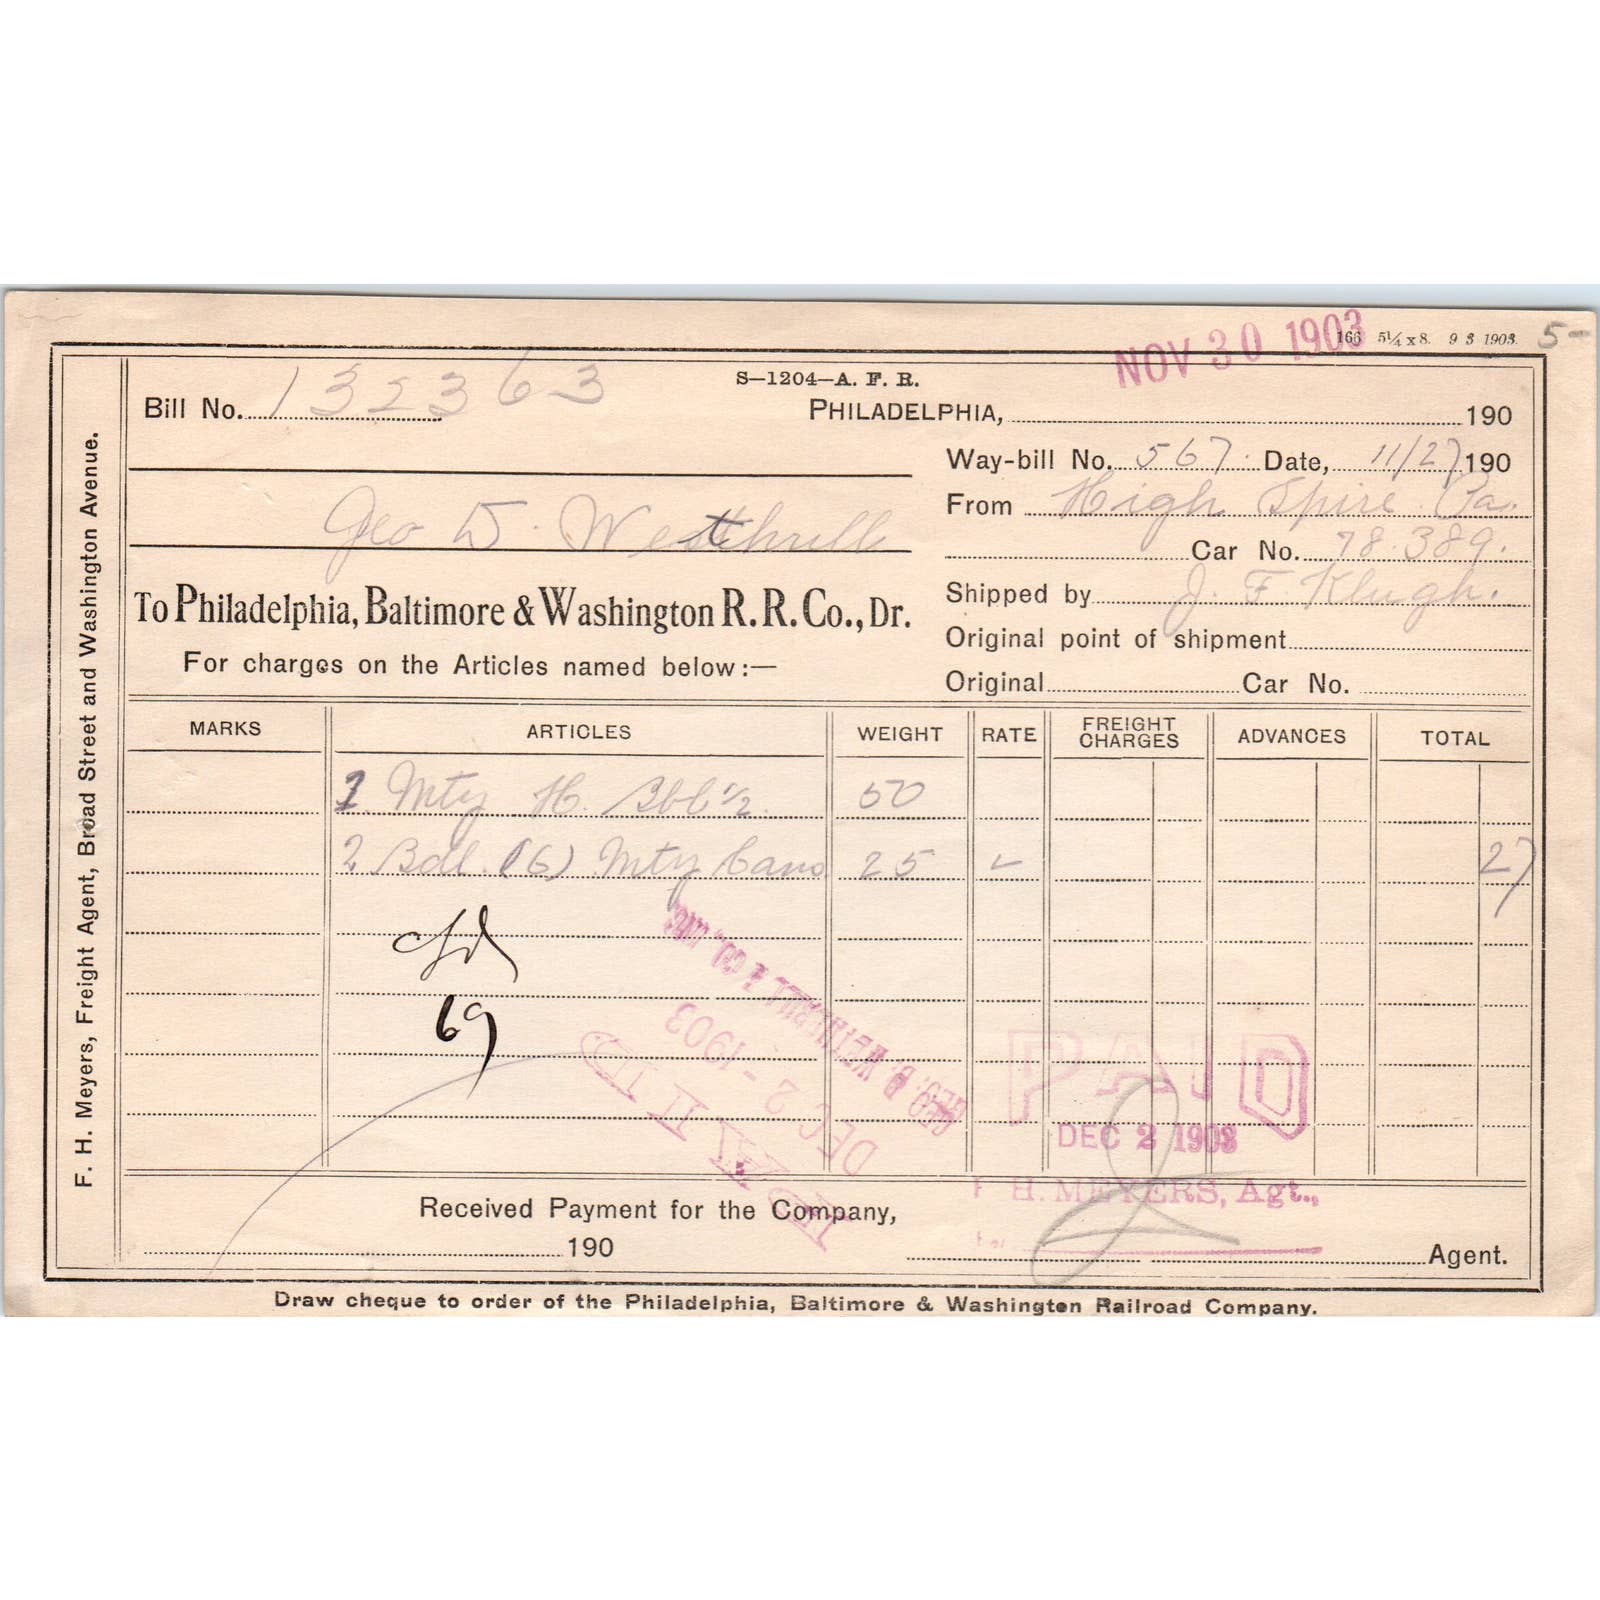 NOV 30 1903
166 5¼ x 8. 9 3 1903. 5-
S—1204—A. F. R.
Bill No. 132363
PHILADELPHIA, 190
Way-bill No. 567. Date, 11/27 190
From High Spire Pa.
Geo D. Wetthrill
Car No. 78.389.
To Philadelphia, Baltimore & Washington R. R. Co., Dr.
Shipped by J. F. Klugh.
Original point of shipment
For charges on the Articles named below:—
Original Car No.
MARKS ARTICLES WEIGHT RATE FREIGHT CHARGES ADVANCES TOTAL
1 Mty H. Bbl ½ 50
2 Bdl. (6) Mty Cans 25 ✓ 27
69
GEO. D. WETHERILL & CO. INC.
DEC 2 - 1903
PAID
PAID
DEC 2 1903
H. MEYERS, Agt.,
Received Payment for the Company,
190
Agent.
Draw cheque to order of the Philadelphia, Baltimore & Washington Railroad Company.
F. H. Meyers, Freight Agent, Broad Street and Washington Avenue.